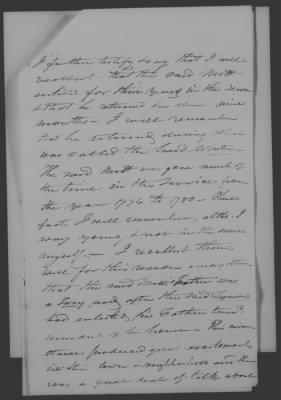 I further testify & say that I well
recollect that the said Mott
enlisted for three years in the
& that he returned in nine
months – I well remember
that he returned during what
was called the hard Winter –
The said Mott was gone much of
the time in the service from
the year 1776 to 1780 – These
facts I well remember, altho. I
was young & not in the service
myself – I recollect them
well for this reason among others
that the said Mott's Father was
a Tory, and after the said
had enlisted, his Father
him a home – This circum
stance produced great excitement
in the town & neighborhood and there
was a great deal of talk about